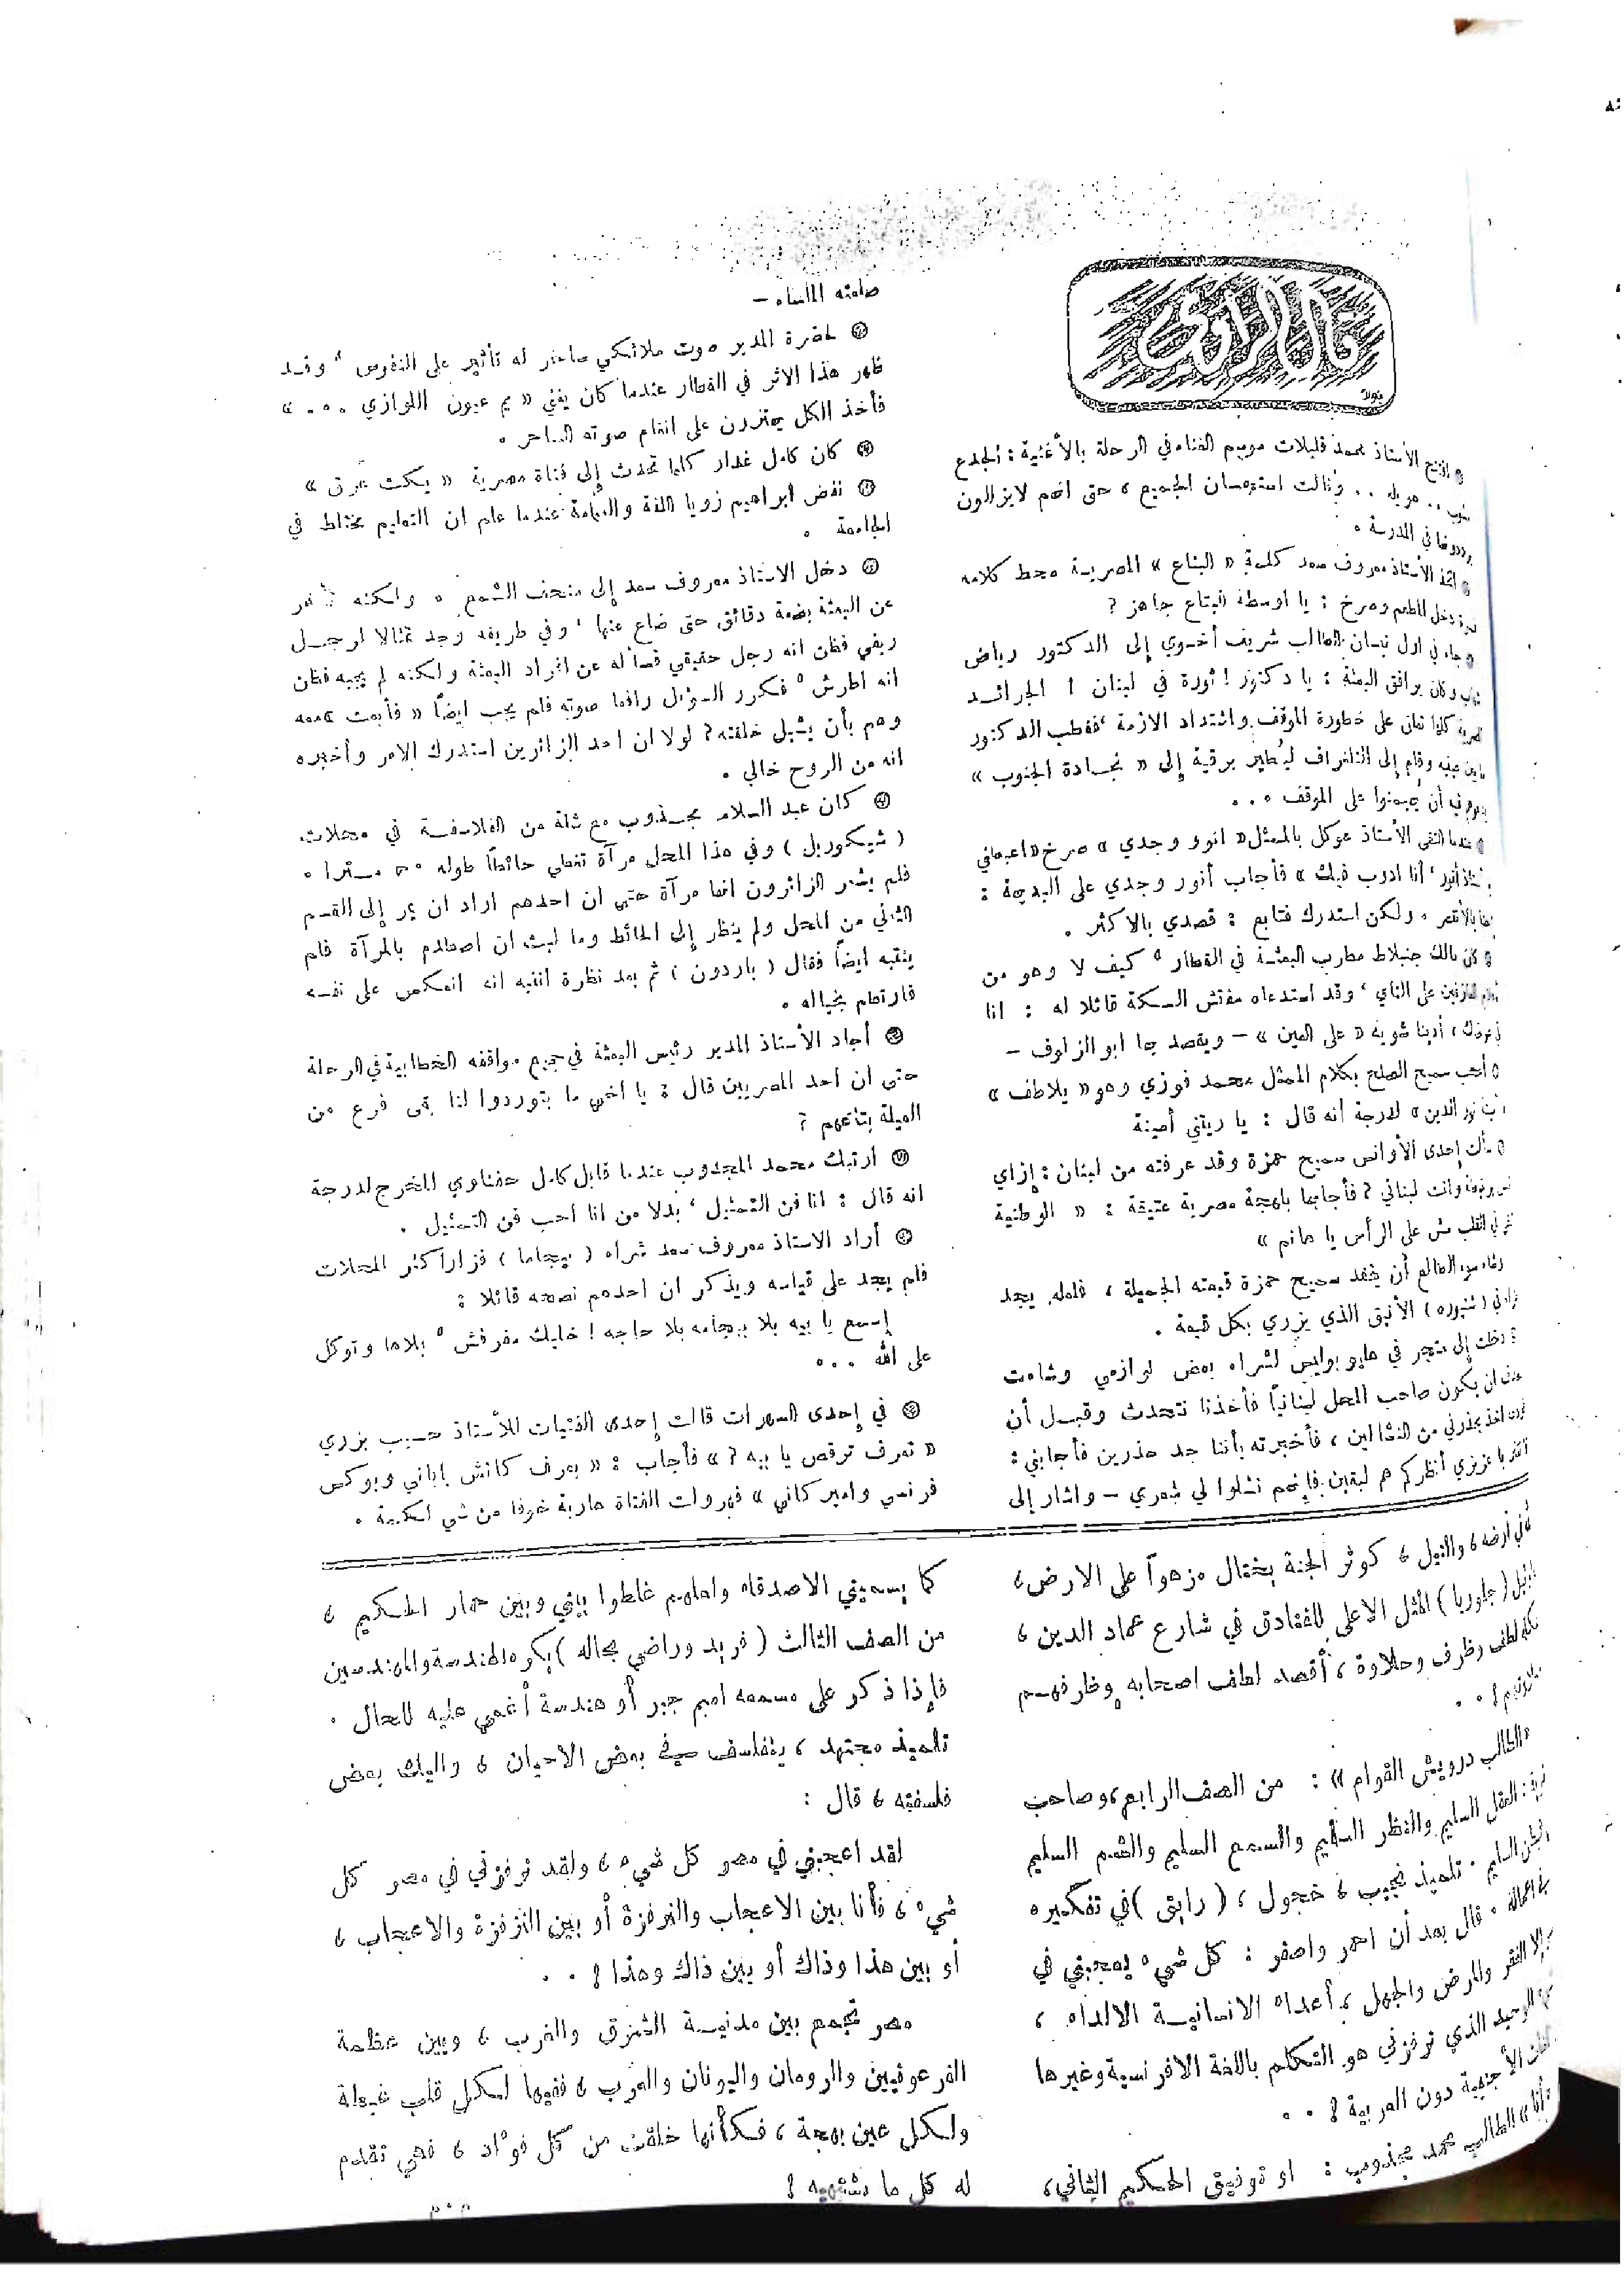 افتتح الأستاذ محمد قليلات موسم الغناء في الرحلة بالأغنية : الجدع
.. هويله .. ونالت استحسان الجميع ، حتى انهم لايزالون
يرددونها في المدرسة .
اتخذ الأستاذ معروف سعد كلمة « البتاع » المصرية محط كلامه
دخل المطعم وصرخ : يا اوسطه البتاع جاهز ?
جاء في اول نيسان الطالب شريف أخوي إلى الدكتور رياض
وكان يرافق البعثة : يا دكتور ! ثورة في لبنان ! الجرائد
المصرية كلها تعلق على خطورة الموقف واشتداد الازمة ، فقطب الدكتور
مابين عينيه وقام إلى التلغراف ليُطير برقية إلى « نجادة الجنوب »
أن يهيمنوا على الموقف ...
عندما التقى الأستاذ عوكل بالممثل « انور وجدي » صرخ « اعبطني
أنور ، أنا ادوب فيك » فأجاب أنور وجدي على البديهة :
ولكن استدرك فتابع : قصدي بالاكثر .
كان مالك جنبلاط مطرب البعثة في القطار ، كيف لا وهو من
العازفين على الناي ، وقد استدعاه مفتش السكة قائلا له : انا
أدينا شوية « على العين » – ويقصد بها ابو الزلوف –
أعجب سميح الصلح بكلام الممثل محمد فوزي وهو « يلاطف »
نور الدين » لدرجة انه قال : يا ريتني أمينة
سألت إحدى الأوانس سميح حمزة وقد عرفته من لبنان : إزاي
وانت لبناني ? فأجابها بلهجة مصرية عتيقة : « الوطنية
في القلب مش على الرأس يا هانم »
سوء الطالع أن يفقد سميح حمزة قبعته الجميلة ، فلعله يجد
الأنيق الذي يزري بكل قبعة .
دخلت إلى متجر في هليوبوليس لشراء بعض لوازمي وشاءت
ان يكون صاحب المحل لبنانياً فأخذنا نتحدث وقبل أن
اخذ يحذرني من النشالين ، فأخبرته بأننا جد حذرين فأجابني :
يا عزيزي أنظركم هم لبقين فإنهم نشلوا لي شعري – واشار إلى
صلعته الملساء –
◎ لحضرة المدير صوت ملائكي ساحر له تأثير على النفوس ، وقد
ظهر هذا الاثر في القطار عندما كان يغني « يم عيون اللوازي ... »
فأخذ الكل يهتزون على انغام صوته الساحر .
◎ كان كامل غدار كلما تحدث إلى فتاة مصرية « يكت عرق »
◎ نفض ابراهيم زويا الفقه والعمامة عندما علم ان التعليم مختلط في
الجامعة .
◎ دخل الاستاذ معروف سعد إلى متحف الشمع . ولكنه تأخر
عن البعثة بضعة دقائق حتى ضاع عنها ، وفي طريقه وجد تمثالا لرجل
ريفي فظن انه رجل حقيقي فسأله عن افراد البعثة ولكنه لم يجبه فظن
انه اطرش ، فكرر السؤال رافعا صوته فلم يجب ايضاً « فأبعت » معه
وهم بأن يشبل خلقته ? لولا ان احد الزائرين استدرك الامر وأخبره
انه من الروح خالي .
◎ كان عبد السلام مجذوب مع ثلة من الفلاسفة في محلات
( شيكوريل ) وفي هذا المحل مرآة تغطي حائطاً طوله ٣٠ مترا .
فلم يشعر الزائرون انها مرآة حتى ان احدهم اراد ان يمر إلى القسم
الثاني من المحل ولم ينظر إلى الحائط وما لبث ان اصطدم بالمرآة فلم
ينتبه ايضاً فقال ( باردون ) ثم بعد نظرة انتبه انه انعكس على نفسه
فارتطم بخياله .
◎ أجاد الأستاذ المدير رئيس البعثة في جميع مواقفه الخطابية في الرحلة
حتى ان احد المصريين قال : يا اخي ما بتوردوا لنا بقى فرع من
العيلة بتاعتهم ?
◎ ارتبك محمد المجذوب عندما قابل كامل حفناوي المخرج لدرجة
انه قال : انا فن التمثيل ، بدلا من انا احب فن التمثيل .
◎ أراد الاستاذ معروف سعد شراء ( بيجاما ) فزار اكثر المحلات
فلم يجد على قياسه ويذكر ان احدهم نصحه قائلا :
إسمع يا بيه بلا بيجامه بلا حاجه ! خليك مفرفش ، بلاها وتوكل
على الله ...
◎ في إحدى السهرات قالت إحدى الفتيات للأستاذ حسيب بزري
« تعرف ترقص يا بيه ? » فأجاب : « بعرف كاتش ياباني وبوكس
فرنسي واميركاني » فهرولت الفتاة هاربة خوفا من شي لكمة .
أرضه ، والنيل ، كوثر الجنة يختال مزهواً على الارض ،
( جلوريا ) المثل الاعلى للفنادق في شارع عماد الدين ،
لطف وظرف وحلاوة ، أقصد لطف اصحابه وظرفهم
الطالب درويش القوام » : من الصف الرابع ، وصاحب
العقل السليم والنظر السليم والسمع السليم والشم السليم
السليم . تلميذ نجيب ، خجول ، ( رايق ) في تفكيره
قال بعد أن احمر واصفر : كل شيء يعجبني في
إلا الفقر والمرض والجهل ، أعداء الانسانية الالداء ،
الوحيد الذي نرفزني هو التكلم باللغة الافرنسية وغيرها
الأجنبية دون العربية ! ..
الطالب محمد مجذوب : او توفيق الحكيم الثاني ،
كما يسميني الاصدقاء ولعلهم غلطوا بيني وبين حمار الحكيم ،
من الصف الثالث ( فريد وراضي بحاله ) يكره الهندسة والمهندسين
فإذا ذكر على مسمعه اسم جبر أو هندسة أغمي عليه للحال .
تلميذ مجتهد ، يتفلسف في بعض الاحيان ، واليك بعض
فلسفته ، قال :
لقد اعجبني في مصر كل شيء ، ولقد نرفزني في مصر كل
شيء ، فأنا بين الاعجاب والنرفزة أو بين النرفزة والاعجاب ،
أو بين هذا وذاك أو بين ذاك وهذا ! ..
مصر تجمع بين مدنية الشرق والغرب ، وبين عظمة
الفرعونيين والرومان واليونان والعرب ، ففيها لكل قلب غبطة
ولكل عين بهجة ، فكأنها خلقت من كل فؤاد ، فهي تقدم
له كل ما يشتهيه !